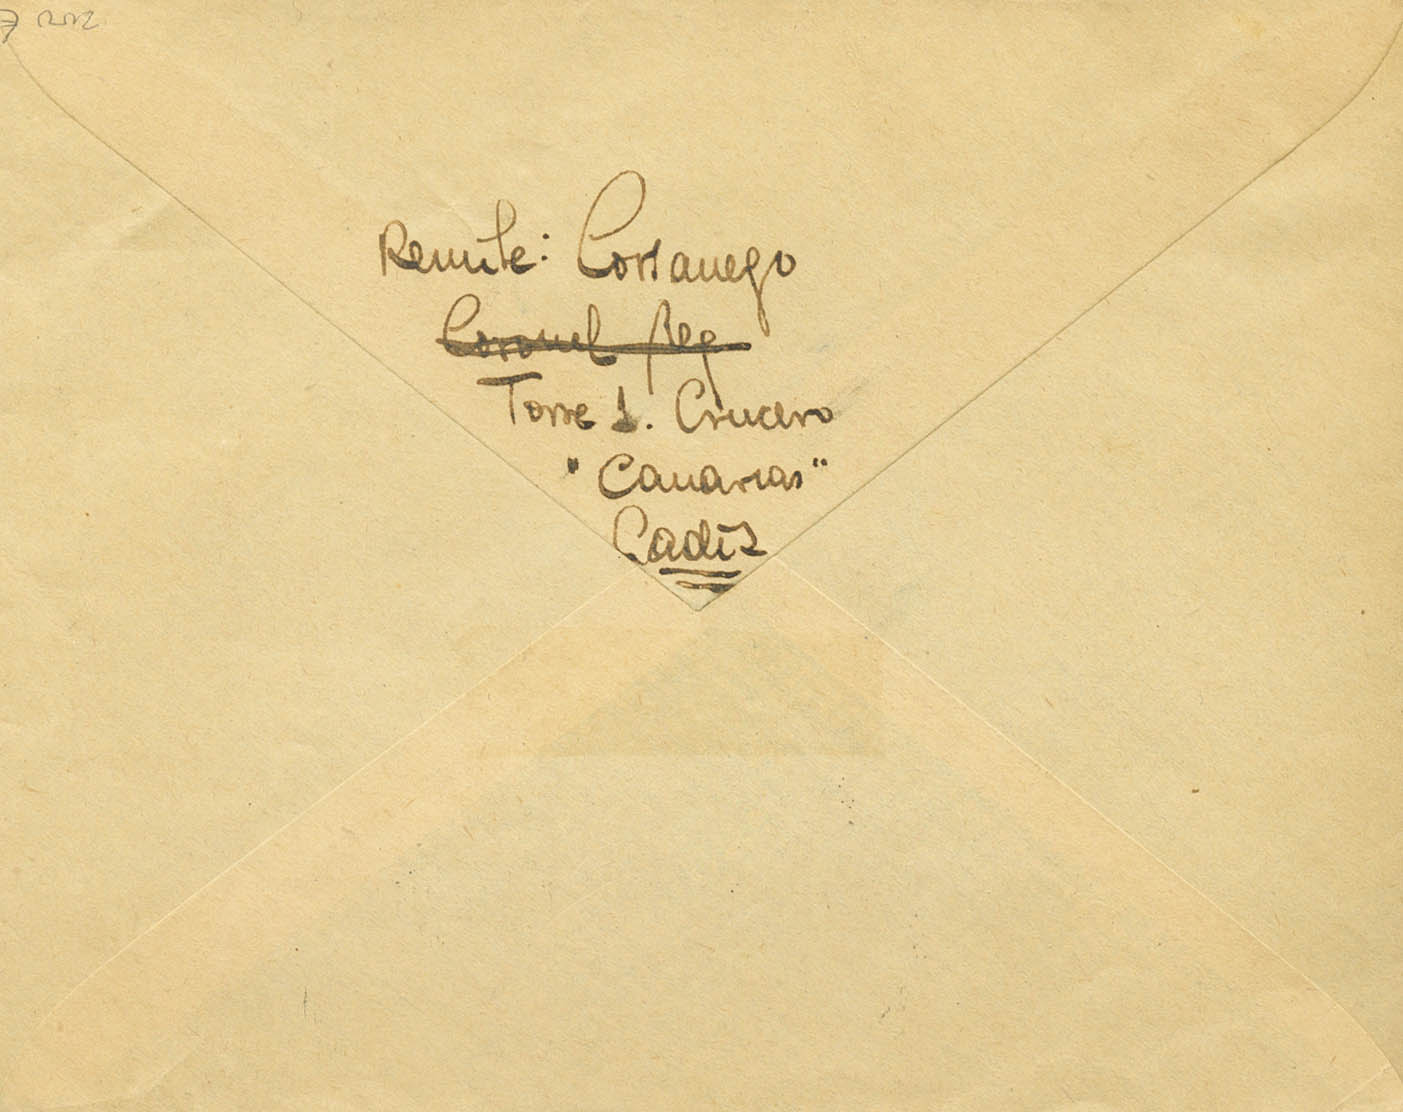 Remite: Corsanego
Coronel Reg
Torre 1. Crucero
"Canarias"
Cadiz